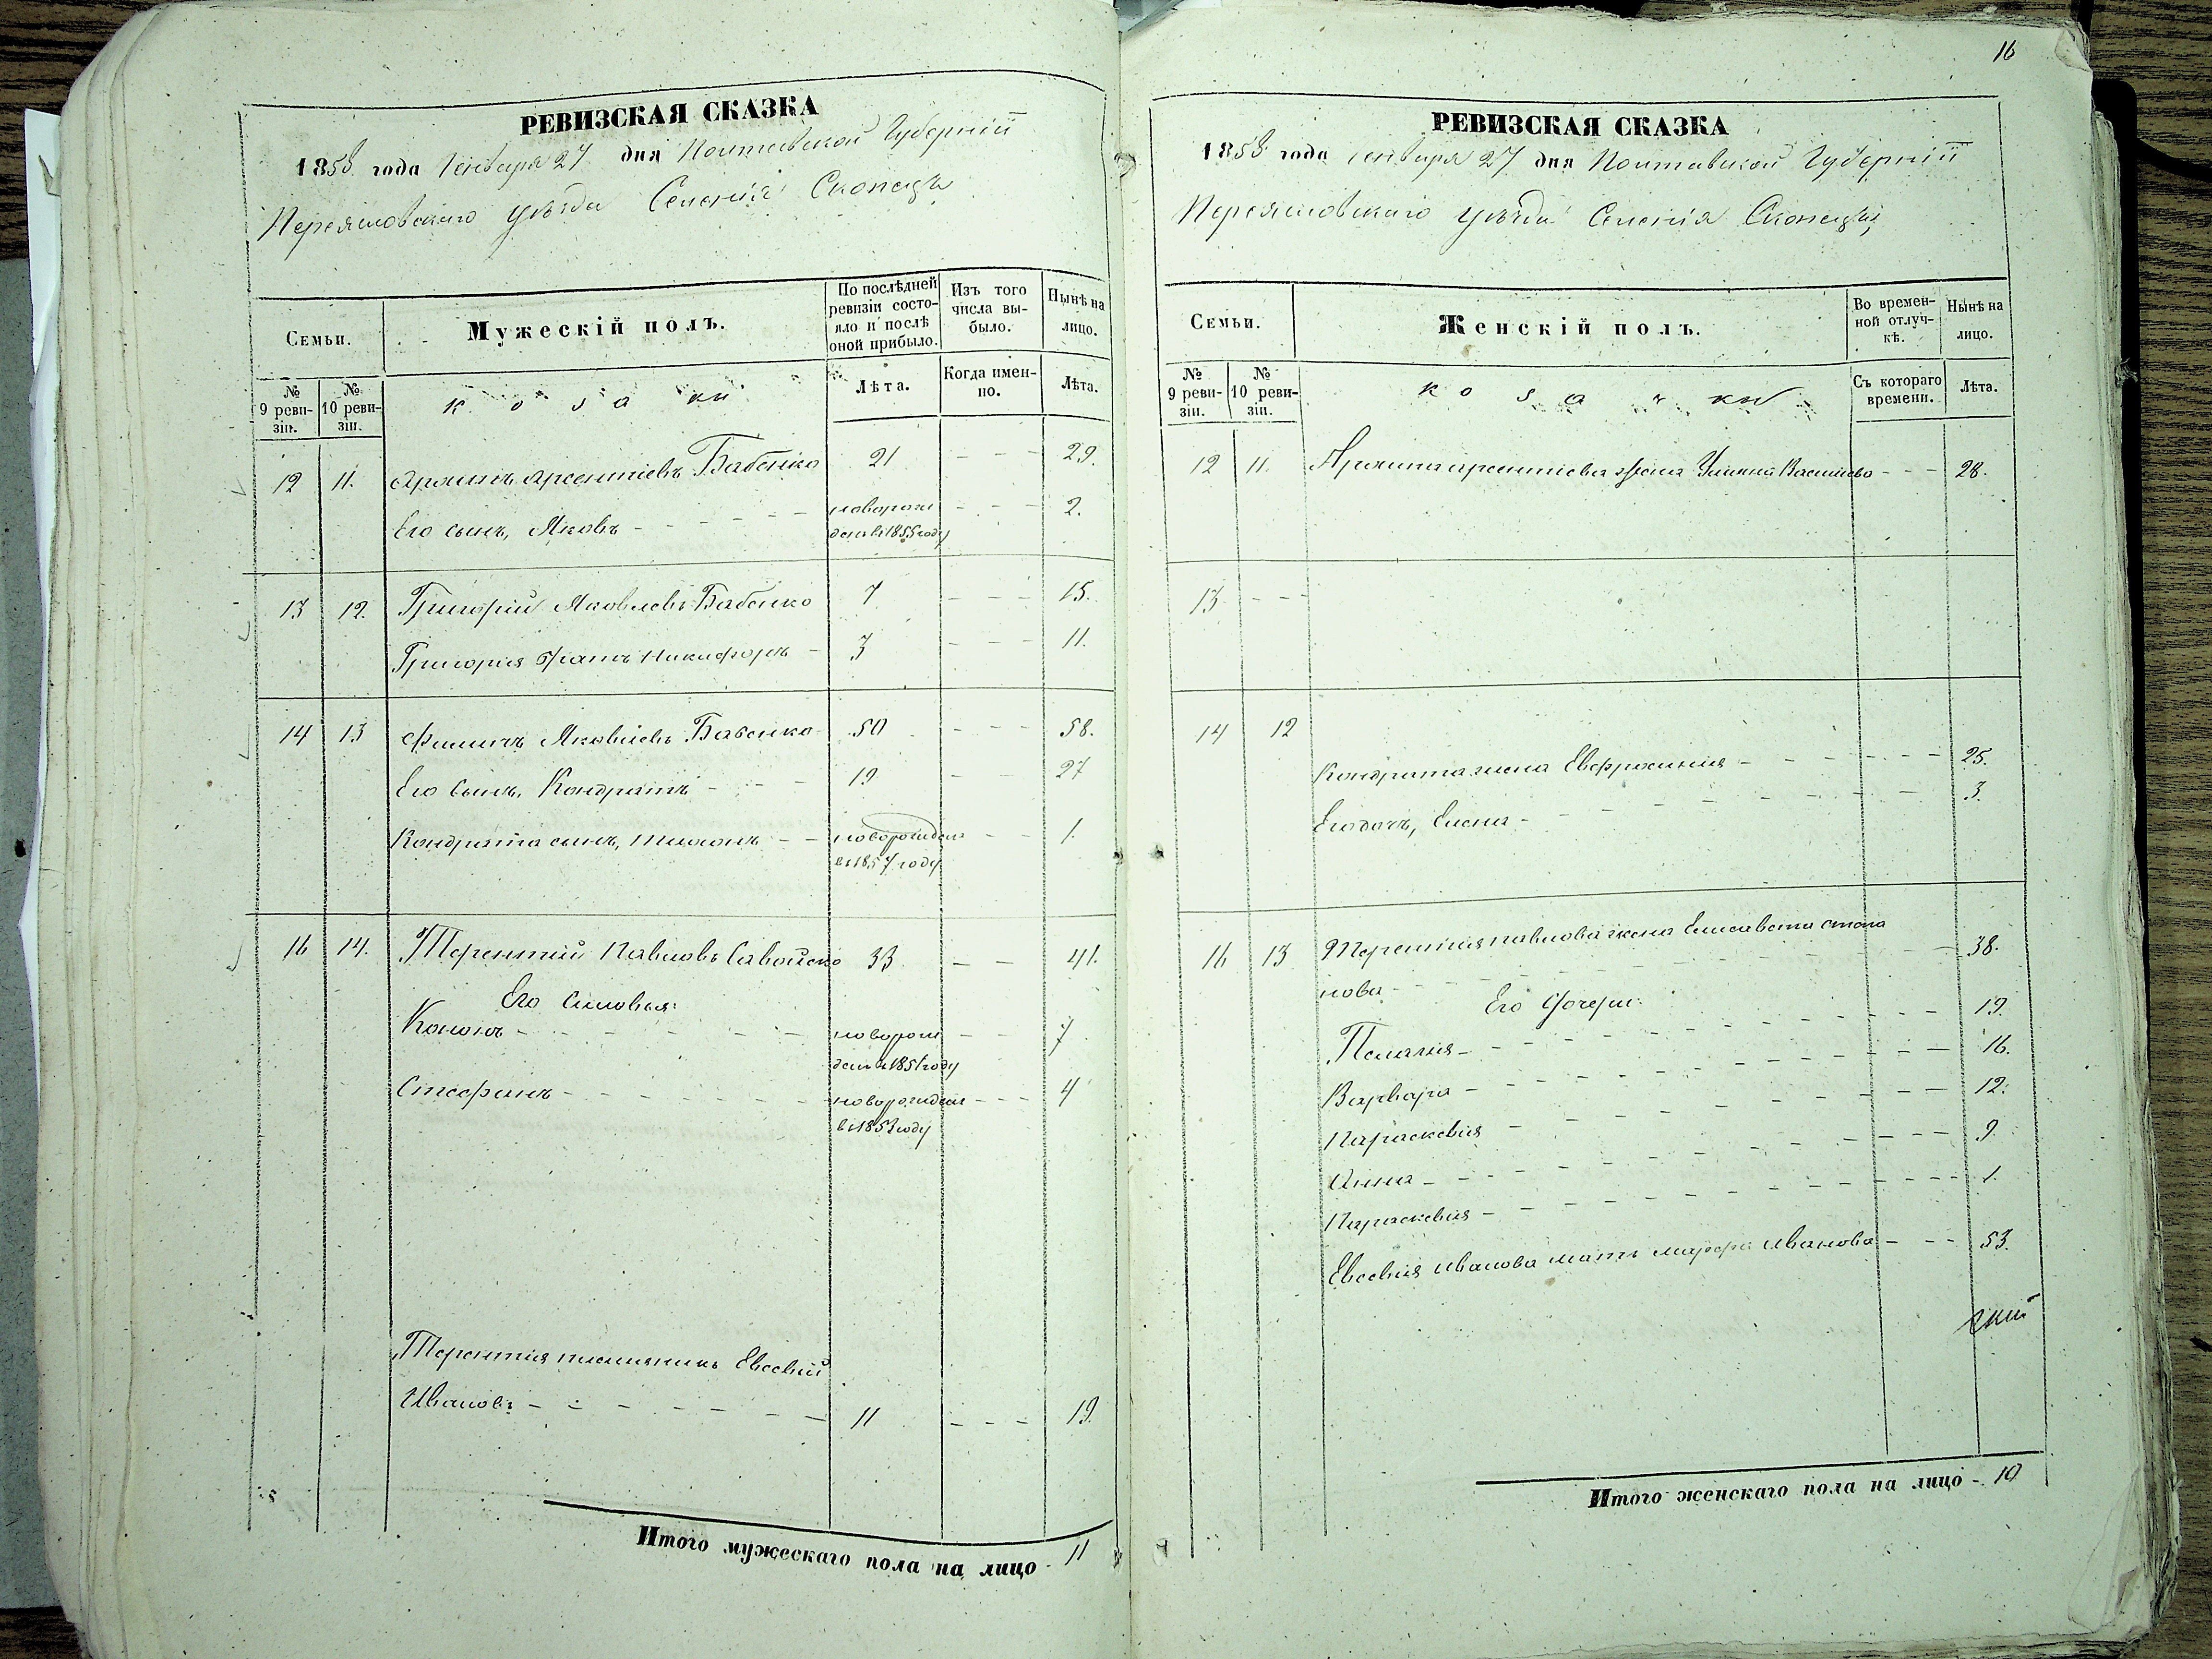 РЕВИЗСКАЯ СКАЗКА
1858 года Генваря 27 дня Полтавской Губерніи
Переяславскаго уѣзда Селенія Скопець
Семьи.
Мужескій полъ.
По послѣдней ревизіи состо-
яло и послѣ оной прибыло.
Изъ того числа вы-
было.
Нынѣ на лицо.
№ 9 реви-
зіи.
№ 10 реви-
зіи.
козаки
Лѣта.
Когда имен-
но.
Лѣта.
12 11. Арсентіевъ Бабенко 21 - - - 29.
Его сынъ, Яковъ - - - - - новорож - - - 2.
денъ въ 1855 году
13 12. Григорій Яковлевъ Бабенко 7 - - - 15.
Григорія братъ Никифоръ - 3 - - - 11.
14 13 Филипъ Яковлевъ Бабенко 50 - - - 58.
Его сынъ, Кондратъ - - - 19 - - 27
Кондрата сынъ, - - новорожденъ - - 1.
въ 1857 году
16 14. Терентій Павловъ 33 - - 41.
Его сыновья:
Кононъ - - - - - новорож - - 7
денъ въ 1851 году
Стефанъ - - - - - новорожденъ - - - 4
въ 1853 году
Терентія племяникъ Евсевій
Ивановъ - - - - - - 11 - - - 19.
Итого мужескаго пола на лицо - 11
16
РЕВИЗСКАЯ СКАЗКА
1858 года Генваря 27 дня Полтавской Губерніи
Переяславскаго уѣзда Селенія Скопець
Семьи.
Женскій полъ.
Во времен-
ной отлуч-
кѣ.
Нынѣ на лицо.
№ 9 реви-
зіи.
№ 10 реви-
зіи.
козачки
Съ котораго времени.
Лѣта.
12 11. Арсентіева жена Ульяна Васильева - - - 28.
13 - - -
14 12
Кондрата жена Евфросинія - - - - - - 25.
Его дочь, Елена - - - - - - - - 3.
16 13 Терентія Павлова жена Елисавета - - 38.
нова - - - - - - -
Его дочери:
Пелагія - - - - - - - - 19.
Варвара - - - - - - - - 16.
Параскевія - - - - - - - 12.
Анна - - - - - - - - 9.
Параскевія - - - - - - - - 1.
Евсевія Иванова мать Марфа Иванова - - - 53.
Итого женскаго пола на лицо - 10